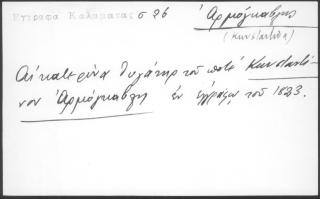 Εγγραφα Καλαματας σ 26
Ἁρμόγκαβλης
(Κωνσταντίνα)
Αἰκατερίνα θυγάτηρ τοῦ ποτέ Κωνσταντί-
νου Ἁρμόγκαβλη ἐν ἐγγράφῳ τοῦ 1823.